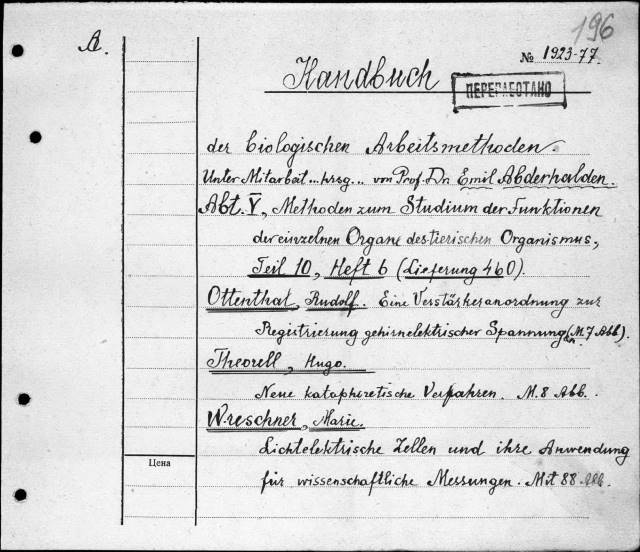 196
A.
№ 1923-77.
Handbuch
ПЕРЕРАБОТАНО
der biologischen Arbeitsmethoden.
Unter Mitarbeit .. hrsg... von Prof. Dr. Emil Abderhalden.
Abt. V, Methoden zum Studium der Funktionen
der einzelnen Organe des tierischen Organismus,
Teil 10, Heft 6 (Lieferung 460).
Ottenthal, Rudolf. Eine Verstärkeranordnung zur
Registrierung gehirnelektrischer Spannungen. (M. 7 Abb.).
Theorell, Hugo.
Neue kataphoretische Verfahren. M. 8 Abb..
Wreschner, Marie.
Lichtelektrische Zellen und ihre Anwendung
Цена
für wissenschaftliche Messungen. Mit 88 Abb.